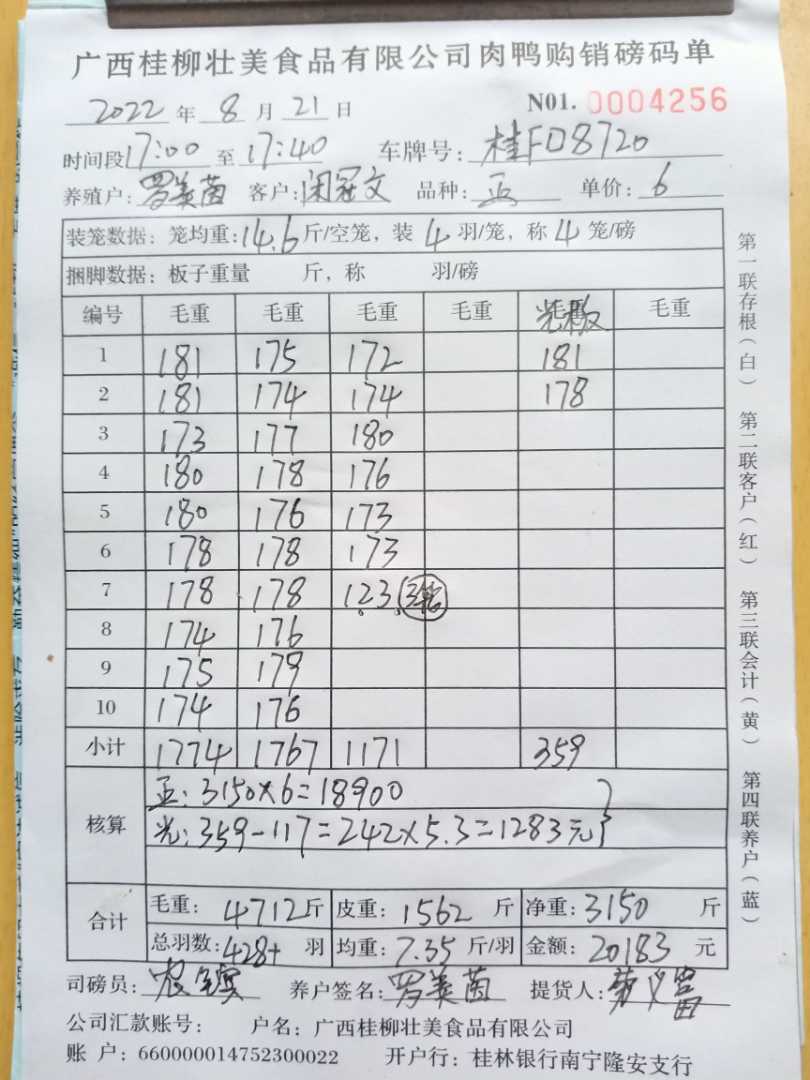 广西桂柳壮美食品有限公司肉鸭购销磅码单
2022 年 8 月 21 日 N01. 0004256
时间段 17:00 至 17:40 车牌号: 桂FD8720
养殖户: 罗美茵 客户: 闭冠文 品种: 正 单价: 6
装笼数据: 笼均重: 14.6 斤/空笼, 装 4 羽/笼, 称 4 笼/磅
捆脚数据: 板子重量 斤, 称 羽/磅
编号 毛重 毛重 毛重 毛重 毛重
1 181 175 172 181
2 181 174 174 178
3 173 177 180
4 180 178 176
5 180 176 173
6 178 178 173
7 178 178 123 3笼
8 174 176
9 175 179
10 174 176
小计 1774 1767 1171 359
核算 正: 3150×6=18900
光: 359-117=242×5.3=1283元
合计 毛重: 4712 斤 皮重: 1562 斤 净重: 3150 斤
总羽数: 428+ 羽 均重: 7.35 斤/羽 金额: 20183 元
司磅员: 养户签名: 罗美茵 提货人:
公司汇款账号: 户名: 广西桂柳壮美食品有限公司
账 户: 660000014752300022 开户行: 桂林银行南宁隆安支行
第一联存根(白) 第二联客户(红) 第三联会计(黄) 第四联养户(蓝)